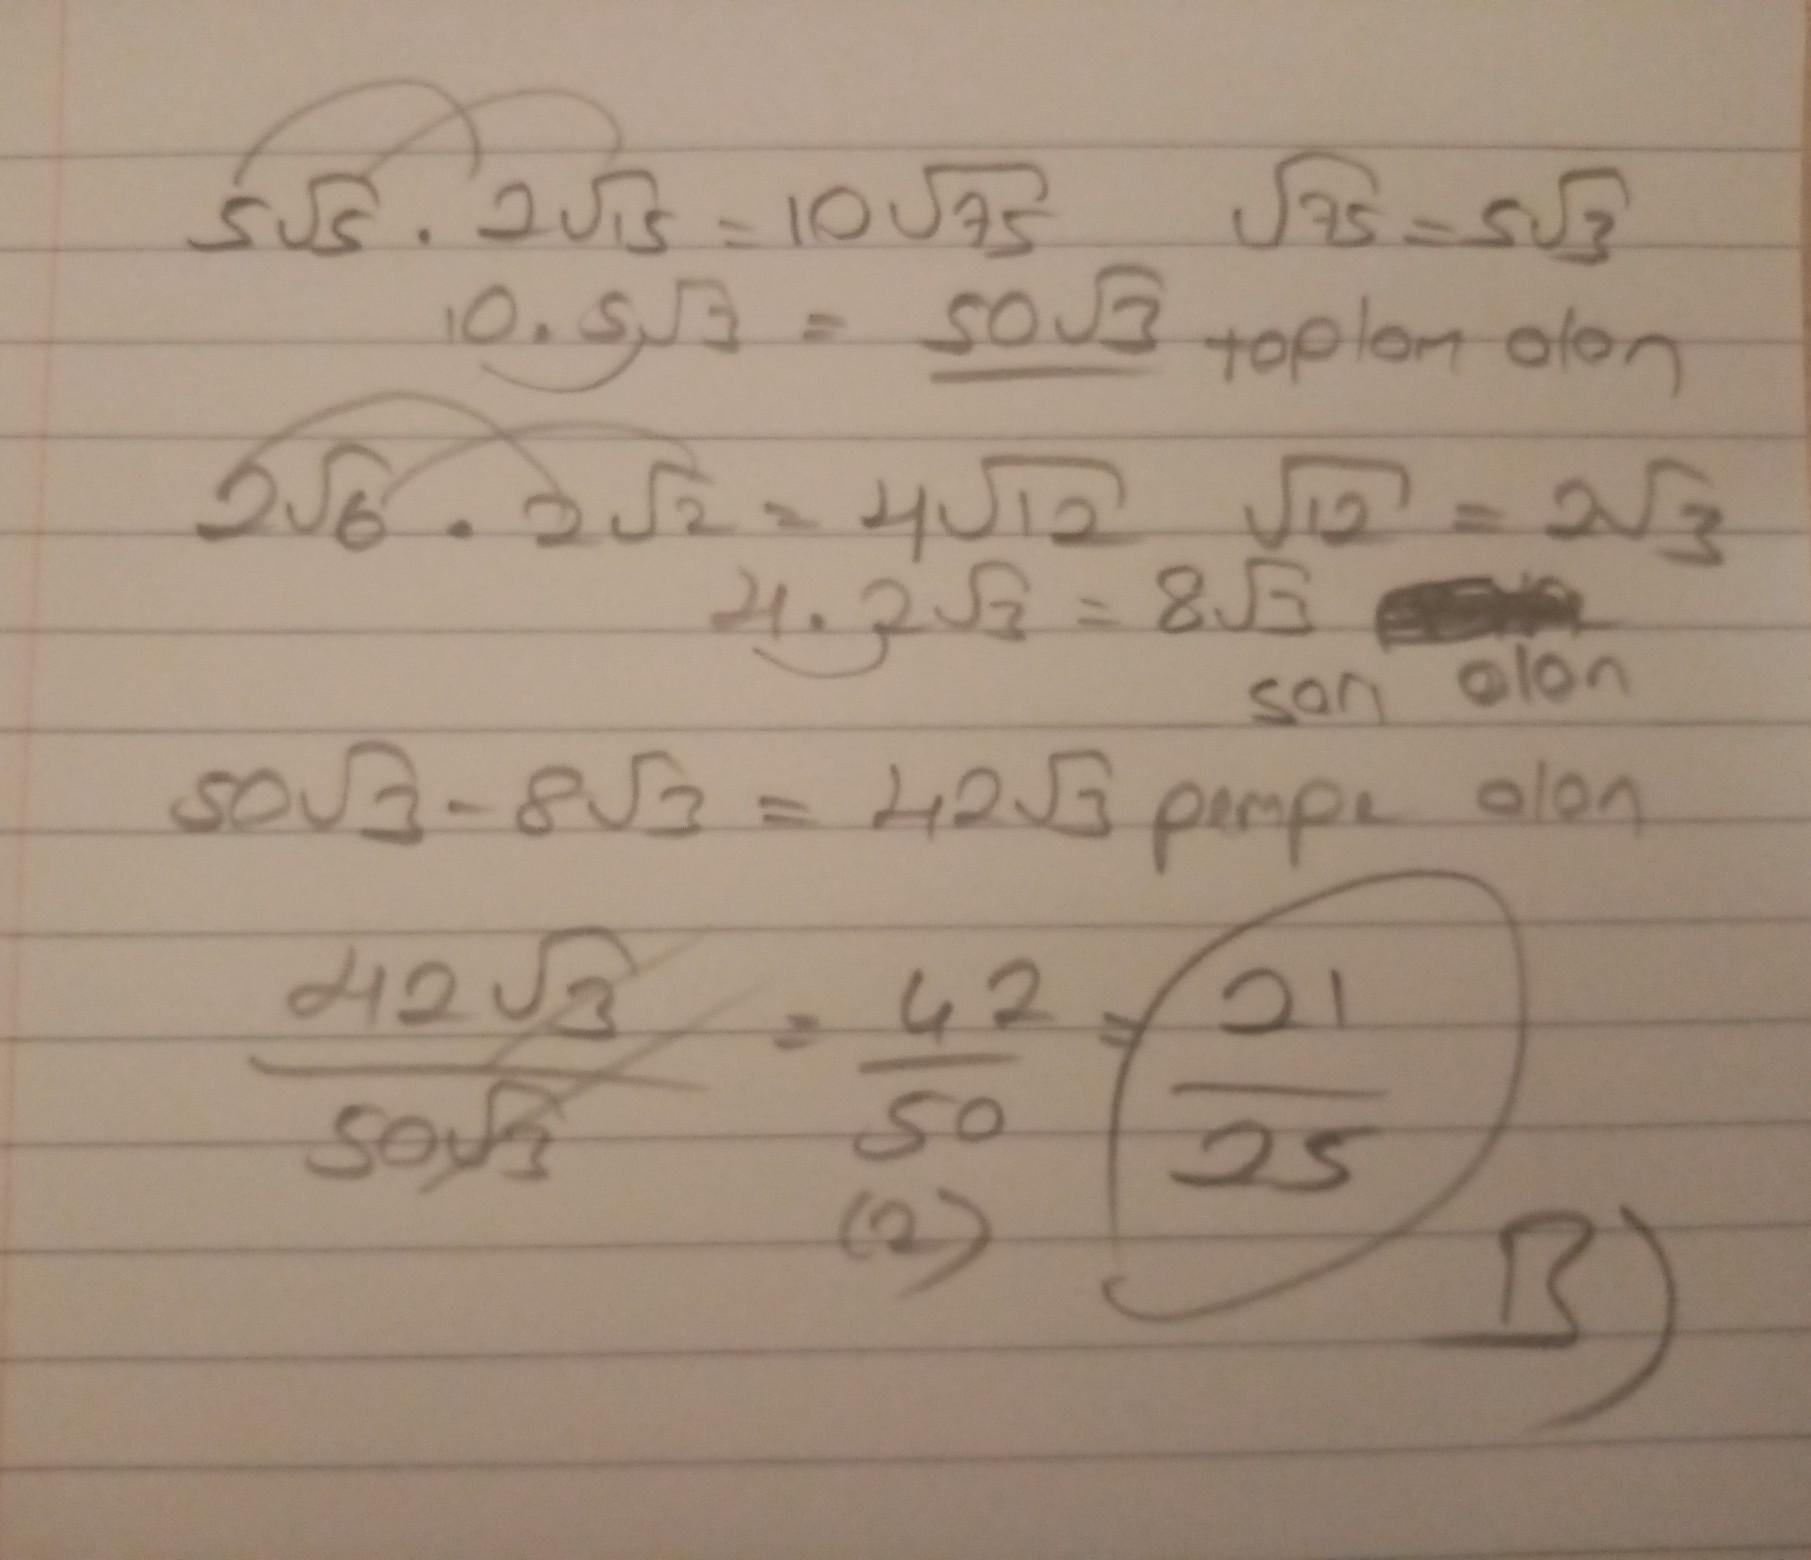 5√5 . 2√15 = 10√75 √75 = 5√3
10 . 5√3 = 50√3 toplam alan
2√6 . 2√2 = 4√12 √12 = 2√3
4 . 2√3 = 8√3
sarı alan
50√3 - 8√3 = 42√3 pempe alan
42√3/50√3 = 42/50 = 21/25
(2)
B)